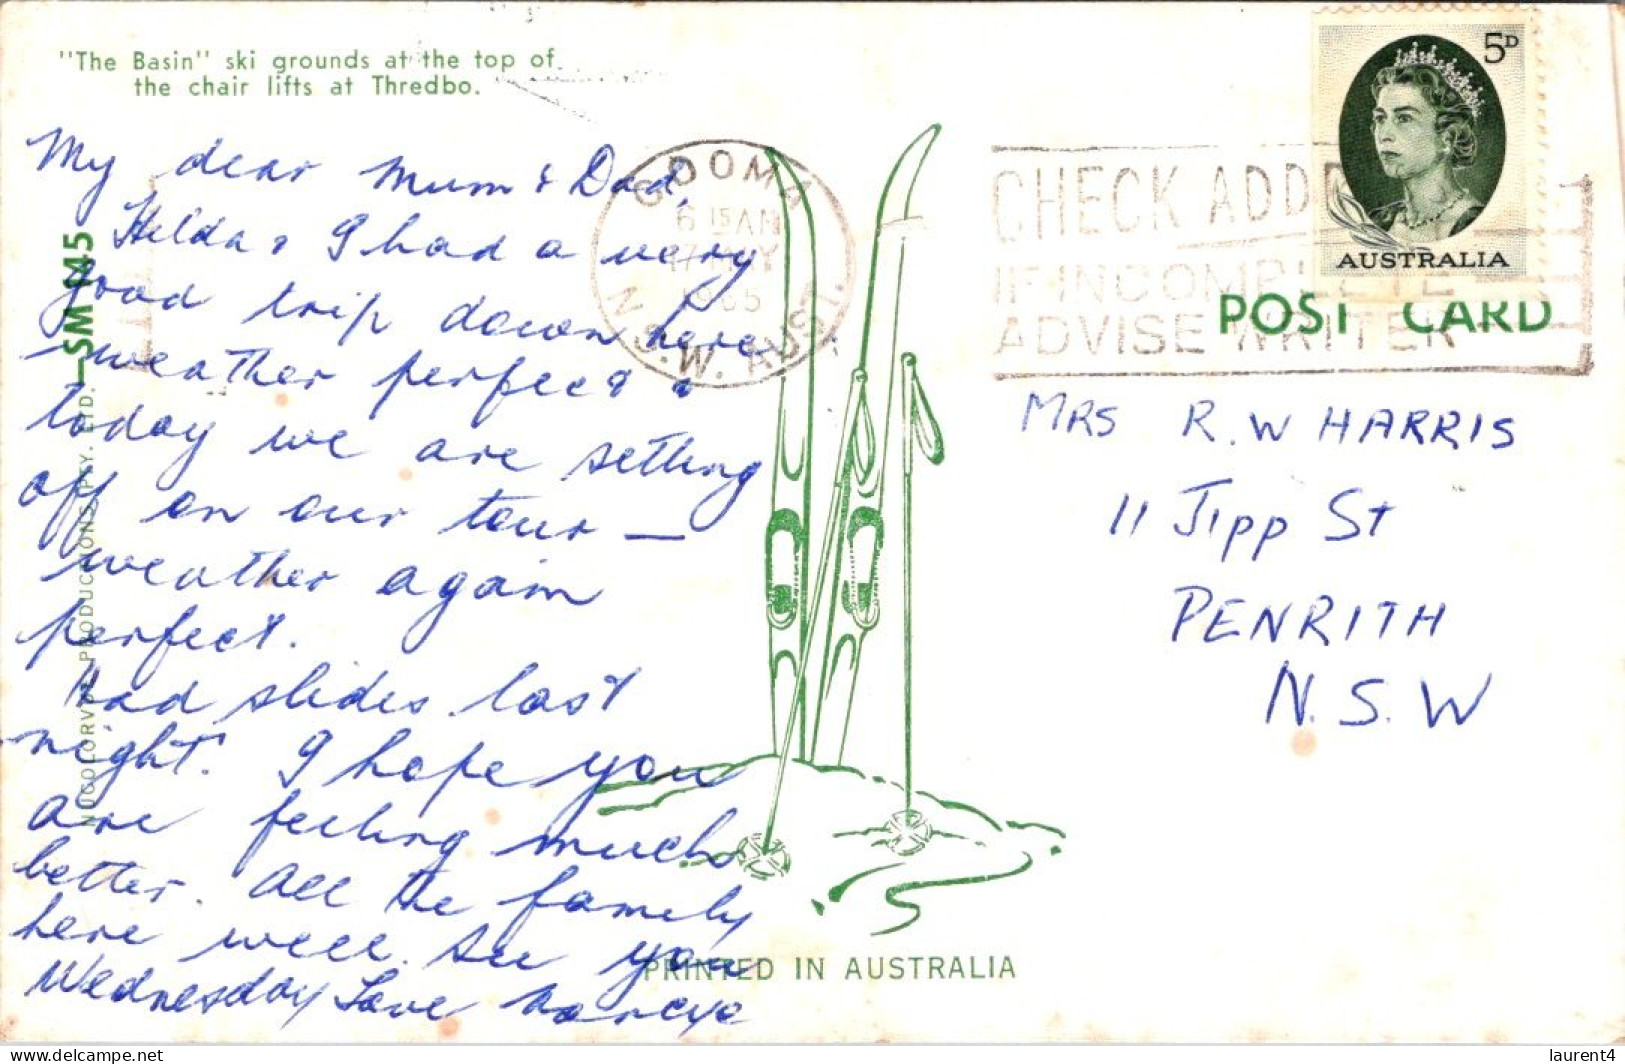 "The Basin" ski grounds at the top of
the chair lifts at Thredbo.
My dear Mum & Dad,
Hilda & I had a very
good trip down here
weather perfect &
today we are setting
off on our tour —
weather again
perfect.
Had slides last
night. I hope you
are feeling much
better. All the family
here well. See you
Wednesday Love
NUCOLORVUE PRODUCTIONS PTY. LTD. — SM 145
COOMA
6 15 AM
1965
N.S.W. AUST.
CHECK ADD
IF INCOMPLETE
ADVISE WRITER
5D
AUSTRALIA
POST CARD
MRS R.W HARRIS
11 JIPP ST
PENRITH
N.S.W
PRINTED IN AUSTRALIA
laurent4